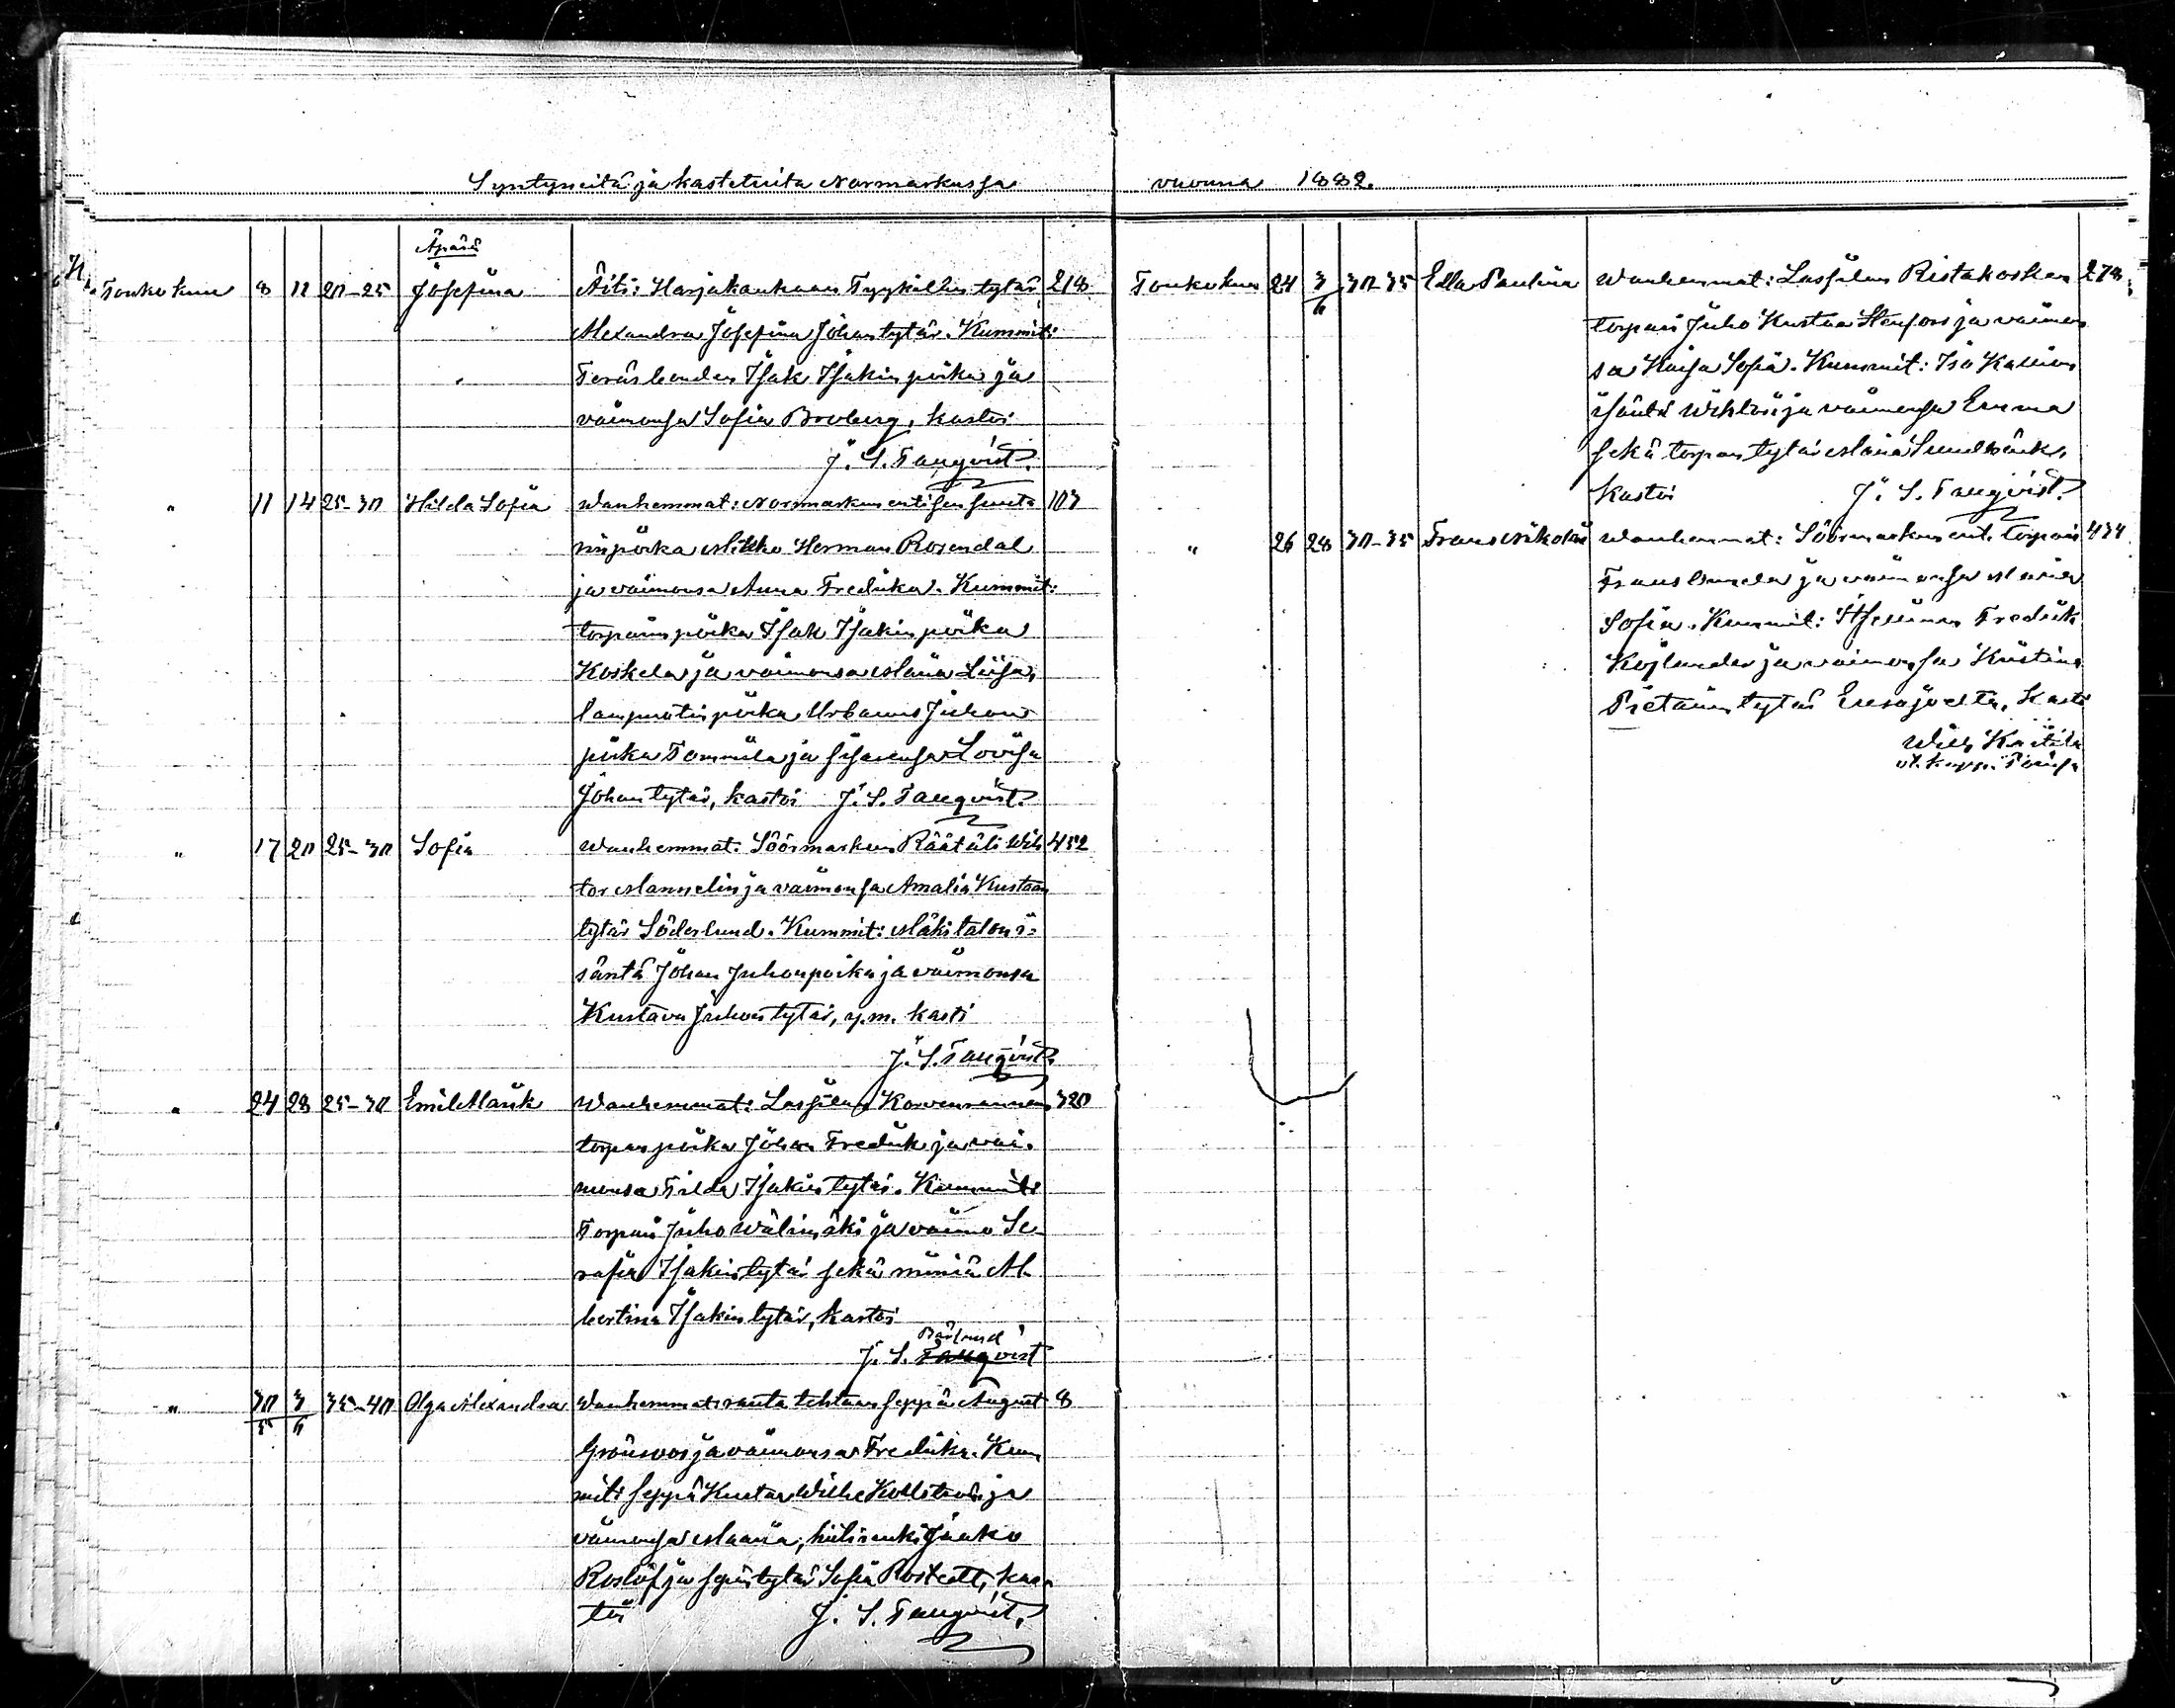 Syntyneitä ja kastetuita Normarkussa vuonna 1882.
Äpärä
Toukokuu 8 11 20-25 Josefina Äiti: Harjakankaan tytär 218
Alexandra Josefina Johantytär. Kummit:
Isak Isakinpoika ja
vaimonsa Sofia Broberg, kastoi
J. S. Tanqvist.
" 11 14 25-30 Hilda Sofia Wanhemmat: Normarkun entisen 103
poika Mikko Herman Rosendal
ja vaimonsa Anna Fredrika. Kummit:
torparinpoika Isak Isakinpoika
Koskela ja vaimonsa Maria Liisa,
lampuotinpoika Urbanus Juhan
poika Tommila ja sisarensa Lovisa
Johantytär, kastoi J. S. Tanqvist.
" 17 20 25-30 Sofia Wanhemmat: Söörmarkun Räätäli Wih 452
tor Mannelin ja vaimonsa Amalia Kustaan
tytär Söderlund. Kummit: Mäkitalon i-
säntä Johan Juhonpoika ja vaimonsa
Kustava Juhontytär, y.m. kasti
J. S. Tanqvist.
" 24 28 25-30 Emil Mauk Wanhemmat: Lassilan Korvenrannan 320
torpanpoika Johan Fredrik ja vai-
monsa Tilda Isakintytär. Kummit:
Torpari Juho Wälimäki ja vaimo Se-
rafia Isakintytär sekä miniä Al-
bertina Isakintytär, kastoi
J. S. Tanqvist
" 30/5 3/6 35-40 Olga Alexandra Wanhemmat: rautatehtaan seppä August 8
Grönroos ja vaimonsa Fredrika. Kum-
mit: seppä Kustaa Wilhe ja
vaimonsa Maria, Jaako
Roslöf ja sepäntytär Sofia Rostedt, kas-
toi J. S. Tanqvist.
Toukokuu 24 3/6 30-35 Edla Paulina Wanhemmat: Lassilan Ristakosken 278
torpari Juho Kustaa Stenfors ja vaimon
sa Kaisa Sofia. Kummit: Iso Kallion
isäntä Wihtori ja vaimonsa Emma
sekä torpan tytär Maria
Kastoi J. S. Tanqvist.
" 26 28 30-35 Frans Nikolai Wanhemmat: Söörmarkun ent. torpari 434
Frans ja vaimonsa Maria
Sofia. Kummit: Itsellinen Fredrik
Kojlander ja vaimonsa Kristina
tytär Eurajoelta, Kasti